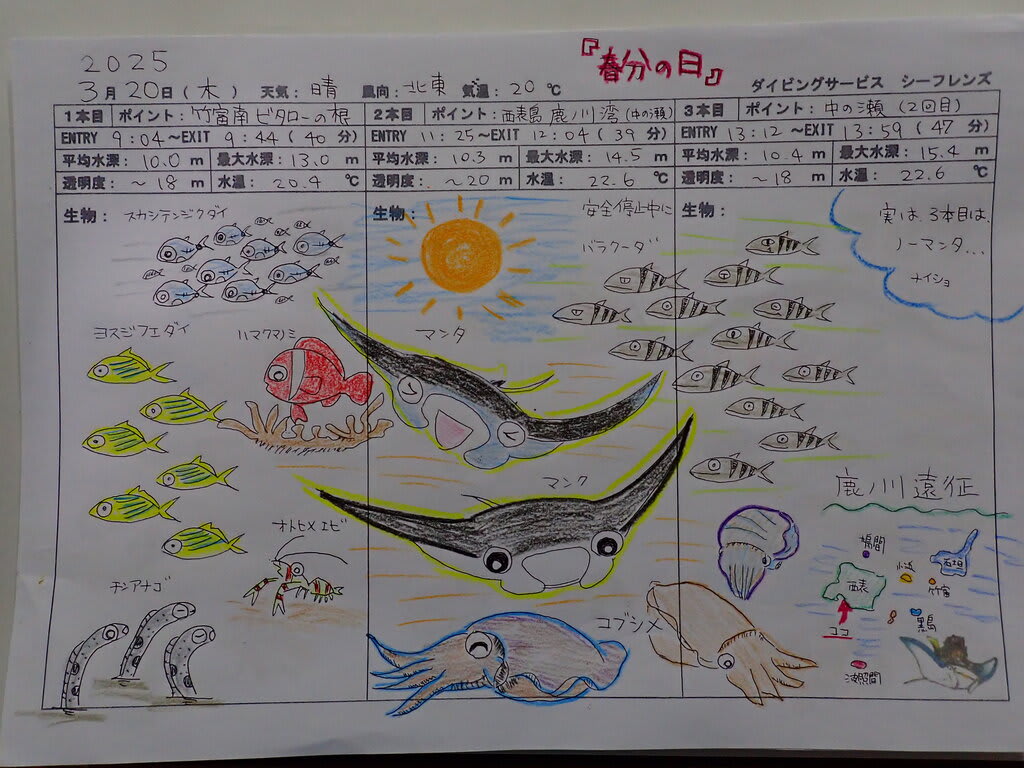 2025
『春分の日』
3月20日(木) 天気: 晴 風向: 北東 気温: 20℃
ダイビングサービス シーフレンズ
1本目 ポイント: 竹富南 ビタローの根
ENTRY 9:04~EXIT 9:44(40分)
平均水深: 10.0m 最大水深: 13.0m
透明度: ~18m 水温: 20.4℃
2本目 ポイント: 西表島 鹿ノ川湾(中の瀬)
ENTRY 11:25~EXIT 12:04(39分)
平均水深: 10.3m 最大水深: 14.5m
透明度: ~20m 水温: 22.6℃
3本目 ポイント: 中の瀬(2回目)
ENTRY 13:12~EXIT 13:59(47分)
平均水深: 10.4m 最大水深: 15.4m
透明度: ~18m 水温: 22.6℃
生物:
スカシテンジクダイ
ヨスジフエダイ
ハマクマノミ
オトヒメエビ
チンアナゴ
生物:
安全停止中に
バラクーダ
マンタ
マンタ
コブシメ
生物:
実は、3本目は、
ノーマンタ...
ナイショ
鹿ノ川遠征
鳩間
石垣
小浜
西表
竹富
黒島
ココ
波照間